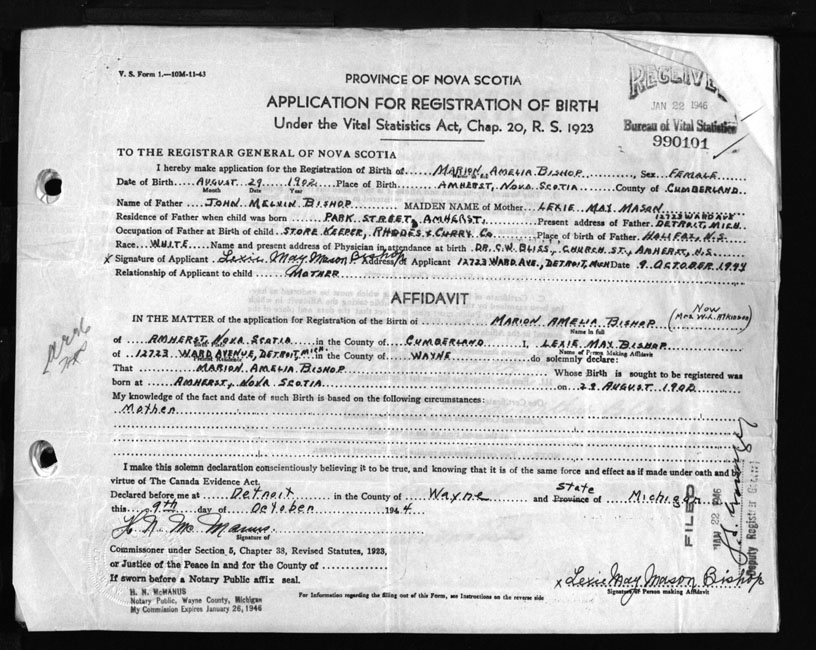 V. S. Form 1.—10M-11-43
PROVINCE OF NOVA SCOTIA
APPLICATION FOR REGISTRATION OF BIRTH
Under the Vital Statistics Act, Chap. 20, R. S. 1923
RECEIVED
JAN 22 1946
Bureau of Vital Statistics
990101
TO THE REGISTRAR GENERAL OF NOVA SCOTIA
I hereby make application for the Registration of Birth of MARION AMELIA BISHOP, Sex FEMALE
Date of Birth AUGUST 29 1902 Place of Birth AMHERST, NOVA SCOTIA County of CUMBERLAND
Month Date Year
Name of Father JOHN MELVIN BISHOP MAIDEN NAME of Mother LEXIE MAY MASON
12723 WARD AVE
Residence of Father when child was born PARK STREET, AMHERST, Present address of Father DETROIT, MICH.
Occupation of Father at Birth of child STORE KEEPER, RHODES & CURRY CO. Place of birth of Father HALIFAX, N.S.
Race WHITE Name and present address of Physician in attendance at birth DR. C.W. BLISS, CHURCH ST., AMHERST, N.S.
x Signature of Applicant Lexie May Mason Bishop Address of Applicant 12723 WARD AVE., DETROIT, MICH Date 9 OCTOBER 1944
Relationship of Applicant to child MOTHER
AFFIDAVIT
IN THE MATTER of the application for Registration of the Birth of MARION AMELIA BISHOP (NOW MRS W.L. ATKINSON)
Name in full
of AMHERST, NOVA SCOTIA in the County of CUMBERLAND I, LEXIE MAY BISHOP
Name of Person Making Affidavit
of 12723 WARD AVENUE, DETROIT, MICH. in the County of WAYNE do solemnly declare:
That MARION AMELIA BISHOP Whose Birth is sought to be registered was
born at AMHERST, NOVA SCOTIA on 29 AUGUST 1902
My knowledge of the fact and date of such Birth is based on the following circumstances:
Mother
I make this solemn declaration conscientiously believing it to be true, and knowing that it is of the same force and effect as if made under oath and by
virtue of The Canada Evidence Act.
Declared before me at Detroit in the County of Wayne and Province of State Michigan
this 9th day of October 1944
H. N. McManus
Signature of
Commissioner under Section 5, Chapter 38, Revised Statutes, 1923,
or Justice of the Peace in and for the County of
If sworn before a Notary Public affix seal.
x Lexie May Mason Bishop
Signature of Person making Affidavit
H. N. McMANUS
Notary Public, Wayne County, Michigan
My Commission Expires January 26, 1946
For Information regarding the filling out of this Form, see Instructions on the reverse side
FILED
JAN 22 1946
Deputy Registrar General